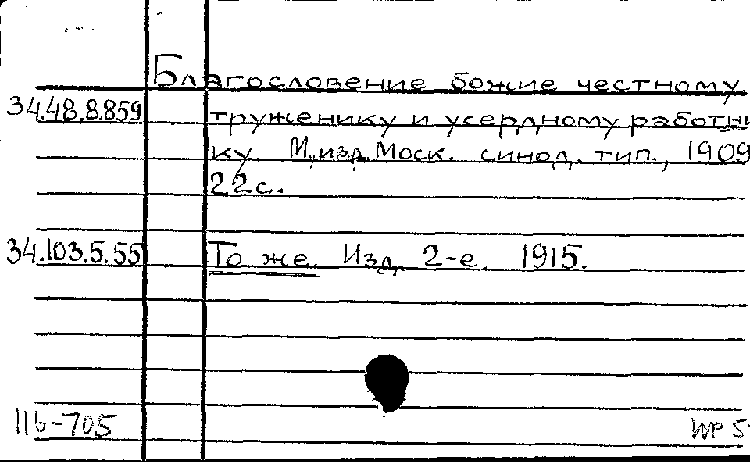 Благословение божие честному
34.48.8.859 труженику и усердному работни
ку. М., изд. Моск. синод. тип., 1909
22 с.
34.103.5.55 То же. Изд. 2-е. 1915.
116-705